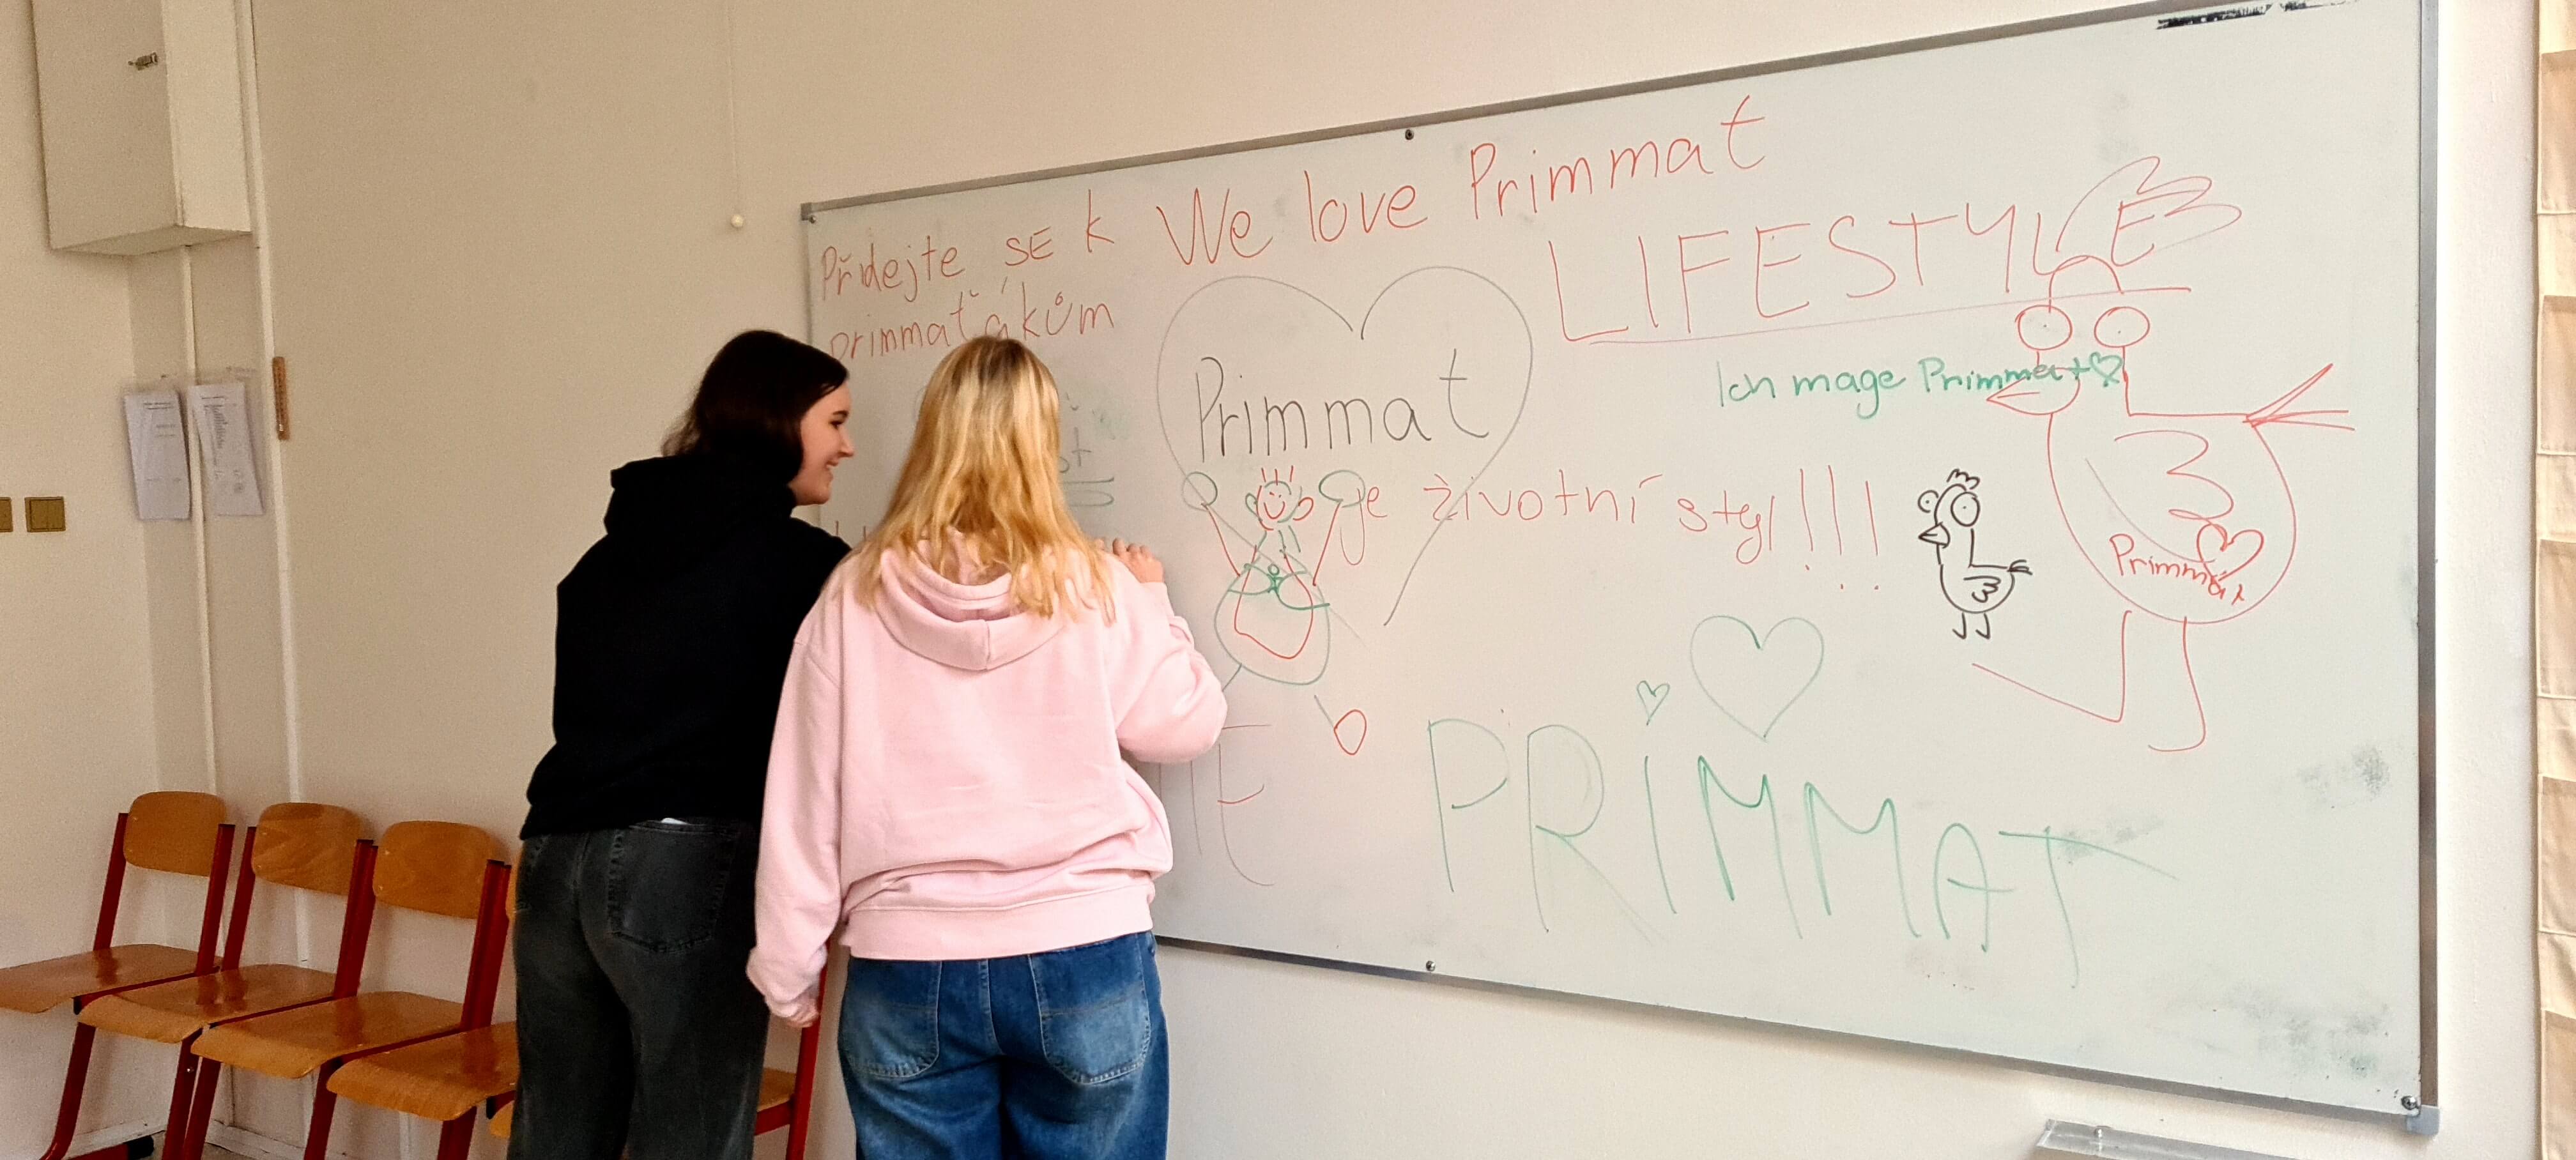 Přidejte SE k
primmaťákům
We love Primmat
LIFESTYLE
Primmat
je životní styl!!!
Ich mage Primmat
Primmat
PRIMMAT